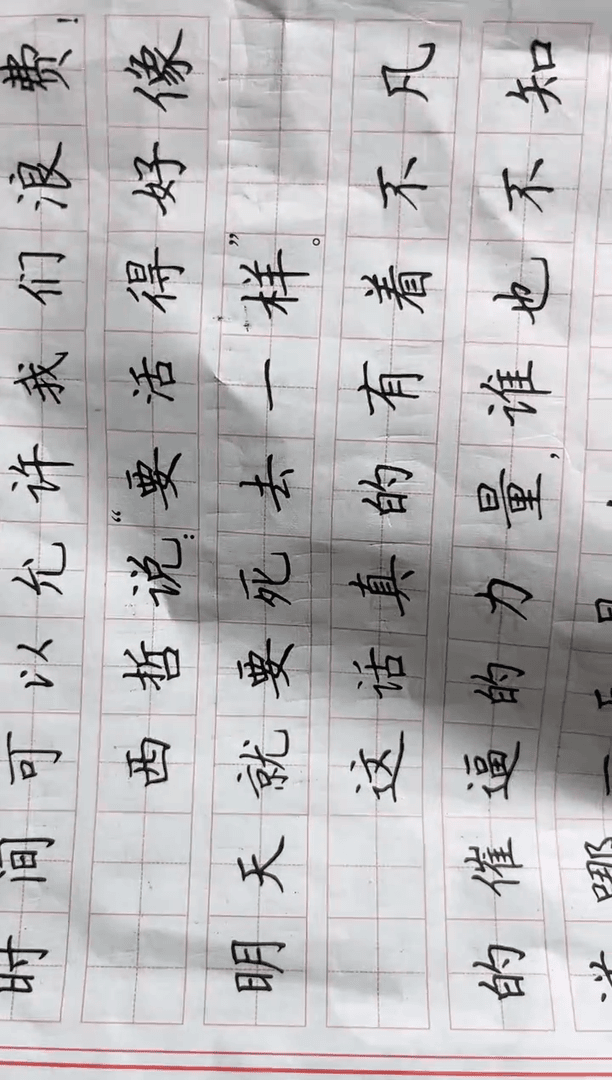 时间可以允许我们浪费！
西哲说：“要活得好像
明天就要死去一样”。
这话真的有着不凡
的催逼的力量，谁也不知
道哪一